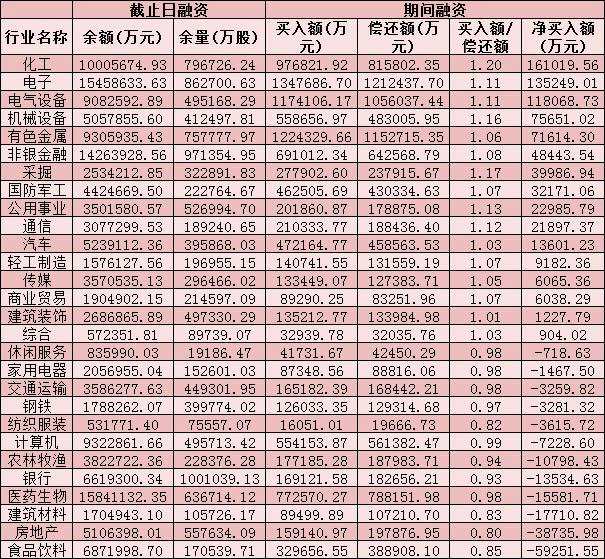 截止日融资 期间融资
行业名称 余额(万元) 余量(万股) 买入额(万元) 偿还额(万元) 买入额/偿还额 净买入额(万元)
化工 10005674.93 796726.24 976821.92 815802.35 1.20 161019.56
电子 15458633.63 862700.63 1347686.70 1212437.70 1.11 135249.01
电气设备 9082592.89 495168.29 1174106.17 1056037.44 1.11 118068.73
机械设备 5057855.60 412497.81 558656.97 483005.95 1.16 75651.02
有色金属 9305935.43 757777.97 1224329.66 1152715.35 1.06 71614.30
非银金融 14263928.56 971354.95 691012.34 642568.79 1.08 48443.54
采掘 2534212.85 322891.83 277902.60 237915.67 1.17 39986.94
国防军工 4424669.50 222764.67 462505.69 430334.63 1.07 32171.06
公用事业 3501580.57 526994.70 201860.87 178875.08 1.13 22985.79
通信 3077299.53 189240.65 210333.77 188436.40 1.12 21897.37
汽车 5239112.36 395868.03 472164.77 458563.53 1.03 13601.23
轻工制造 1576127.56 196955.15 140741.55 131559.19 1.07 9182.36
传媒 3570535.13 296466.02 133449.07 127383.71 1.05 6065.36
商业贸易 1904902.15 214597.09 89290.25 83251.96 1.07 6038.29
建筑装饰 2686865.89 497330.29 135212.77 133984.98 1.01 1227.79
综合 572351.81 89739.07 32939.78 32035.76 1.03 904.02
休闲服务 835990.03 19186.47 41731.67 42450.29 0.98 -718.63
家用电器 2056955.04 152601.03 87348.56 88816.06 0.98 -1467.50
交通运输 3586277.63 449301.95 165182.39 168442.21 0.98 -3259.82
钢铁 1788262.07 399774.02 126033.35 129314.68 0.97 -3281.32
纺织服装 531771.40 75557.07 16051.01 19666.73 0.82 -3615.72
计算机 9322861.66 495713.42 554153.87 561382.47 0.99 -7228.60
农林牧渔 3822722.36 228376.28 177185.28 187983.71 0.94 -10798.43
银行 6619300.34 1001039.13 169121.58 182656.21 0.93 -13534.63
医药生物 15841132.35 636714.12 772570.27 788151.98 0.98 -15581.71
建筑材料 1704943.10 105726.17 89499.89 107210.70 0.83 -17710.82
房地产 5106398.01 557634.09 159140.97 197876.95 0.80 -38735.98
食品饮料 6871998.70 170539.71 329656.55 388908.10 0.85 -59251.55